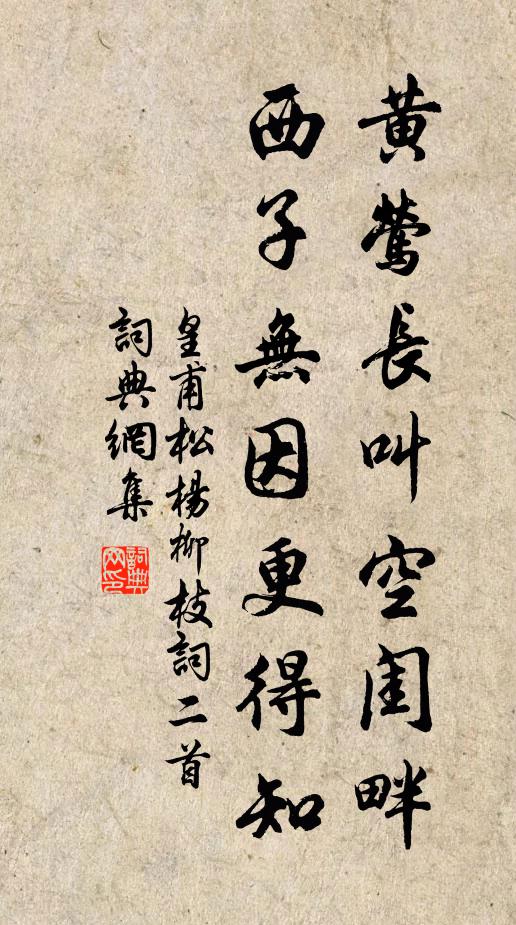 黄鶯長叫空閨畔
西子無因更得知
皇甫松楊柳枝詞二首
詞典網集
詞典
网印